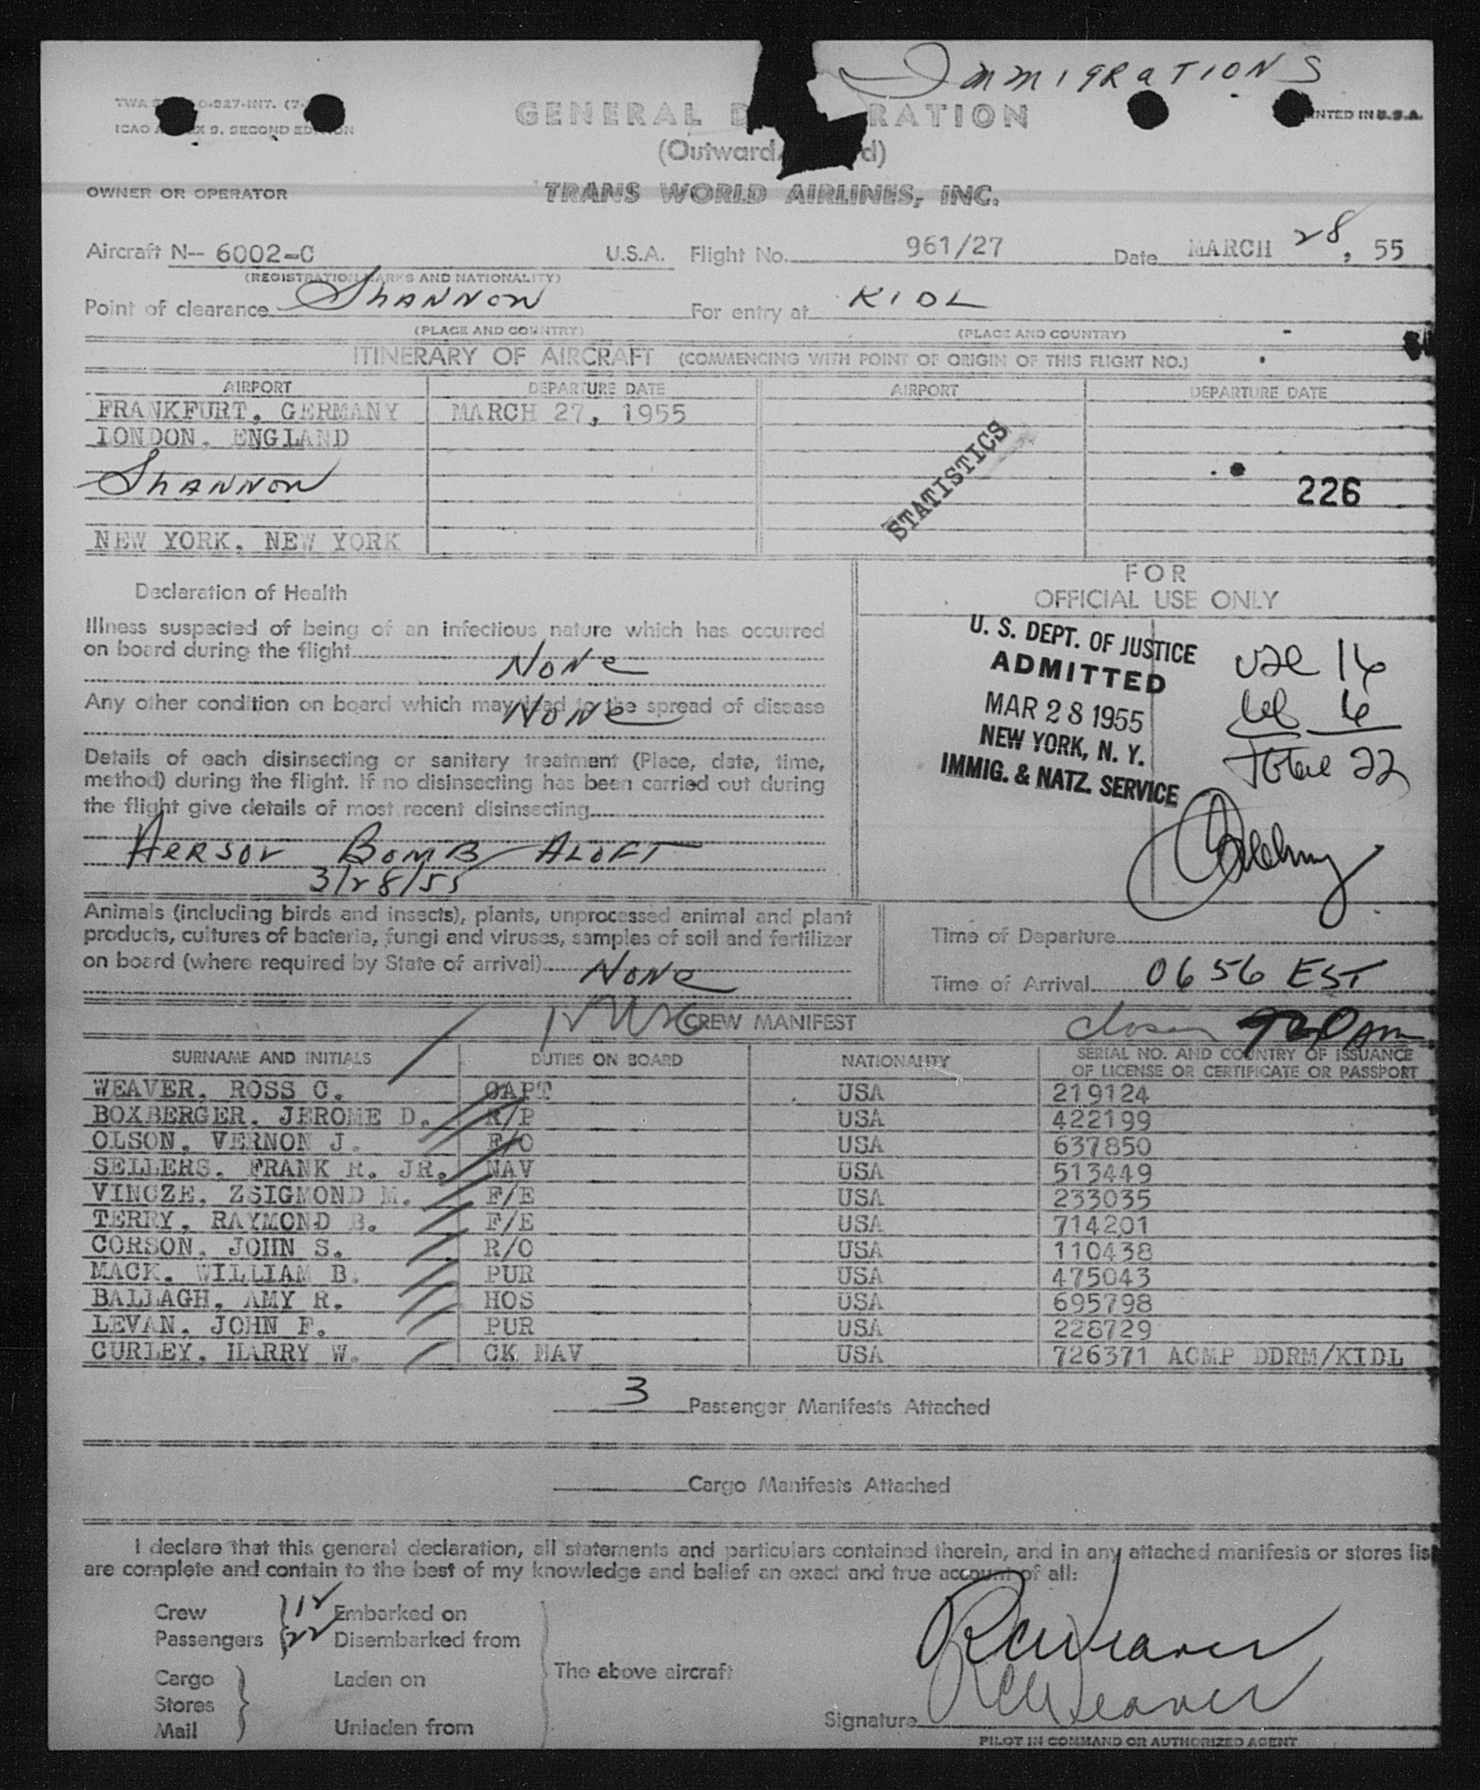 Immigrations
GENERAL D RATION
(Outward d)
TRANS WORLD AIRLINES, INC.
OWNER OR OPERATOR
Aircraft N-- 6002-C U.S.A. Flight No. 961/27 Date MARCH 28, 55
(REGISTRATION MARKS AND NATIONALITY)
Point of clearance Shannon For entry at KIDL
(PLACE AND COUNTRY) (PLACE AND COUNTRY)
ITINERARY OF AIRCRAFT (COMMENCING WITH POINT OF ORIGIN OF THIS FLIGHT NO.)
AIRPORT DEPARTURE DATE AIRPORT DEPARTURE DATE
FRANKFURT, GERMANY MARCH 27, 1955
LONDON, ENGLAND
Shannon
NEW YORK, NEW YORK
STATISTICS
226
Declaration of Health
Illness suspected of being of an infectious nature which has occurred
on board during the flight
None
Any other condition on board which may lead to the spread of disease
None
Details of each disinsecting or sanitary treatment (Place, date, time,
method) during the flight. If no disinsecting has been carried out during
the flight give details of most recent disinsecting
Aersov Bomb Aloft
3/28/55
FOR
OFFICIAL USE ONLY
U. S. DEPT. OF JUSTICE
ADMITTED
MAR 28 1955
NEW YORK, N. Y.
IMMIG. & NATZ. SERVICE
16
6
Total 22
Animals (including birds and insects), plants, unprocessed animal and plant
products, cultures of bacteria, fungi and viruses, samples of soil and fertilizer
on board (where required by State of arrival) None
Time of Departure
Time of Arrival 0656 EST
CREW MANIFEST
SURNAME AND INITIALS DUTIES ON BOARD NATIONALITY SERIAL NO. AND COUNTRY OF ISSUANCE
OF LICENSE OR CERTIFICATE OR PASSPORT
WEAVER, ROSS C. CAPT USA 219124
BOXBERGER, JEROME D. R/P USA 422199
OLSON, VERNON J. F/O USA 637850
SELLERS, FRANK R. JR. NAV USA 513449
VINCZE, ZSIGMOND M. F/E USA 233035
TERRY, RAYMOND B. F/E USA 714201
CORSON, JOHN S. R/O USA 110438
MACK, WILLIAM B. PUR USA 475043
BALLAGH, AMY R. HOS USA 695798
LEVAN, JOHN F. PUR USA 228729
CURLEY, HARRY W. CK NAV USA 726371 ACMP DDRM/KIDL
3 Passenger Manifests Attached
Cargo Manifests Attached
I declare that this general declaration, all statements and particulars contained therein, and in any attached manifests or stores lis
are complete and contain to the best of my knowledge and belief an exact and true account of all:
Crew Embarked on
Passengers 22 Disembarked from
Cargo Laden on
Stores
Mail Unladen from
The above aircraft
RCWeaver
RCWeaver
Signature
PILOT IN COMMAND OR AUTHORIZED AGENT